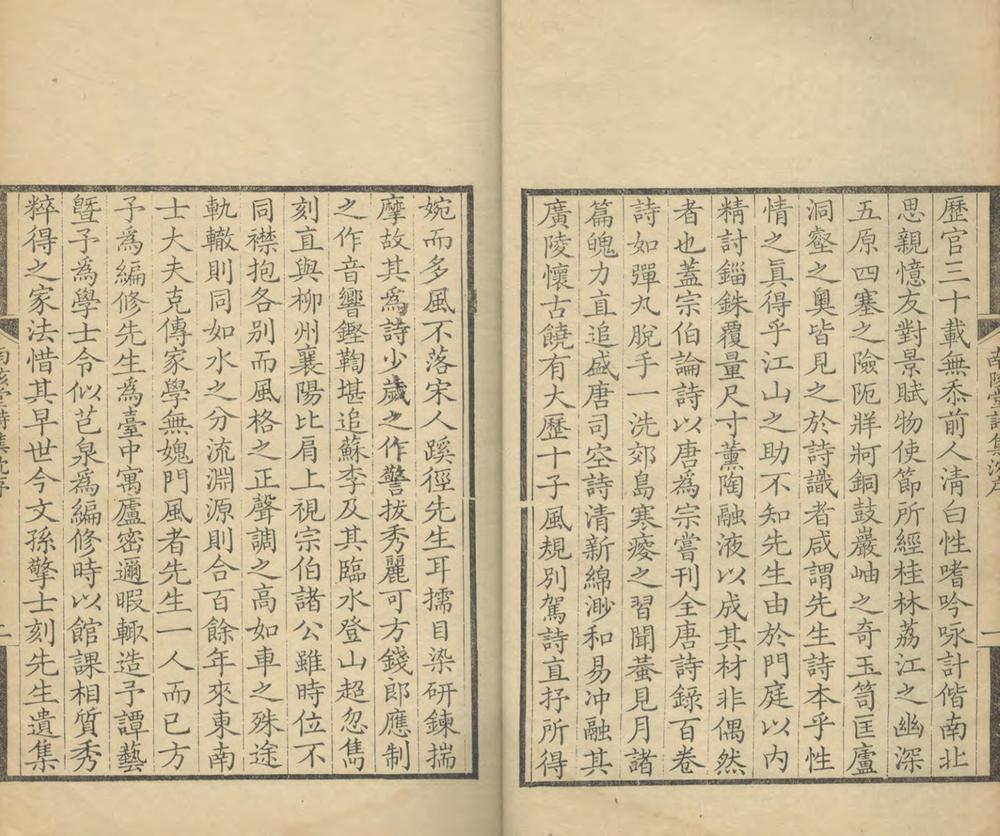 歷官三十載無忝前人淸白性嗜吟咏計偕南北
思親憶友對景賦物使節所經桂林荔江之幽深
五原四塞之險阨牂牁銅鼓巖岫之奇玉笥匡廬
洞壑之奥皆見之於詩識者咸謂先生詩本乎性
情之眞得乎江山之助不知先生由於門庭以内
精討錙銖覆量尺寸薰陶融液以成其材非偶然
者也蓋宗伯論詩以唐爲宗嘗刊全唐詩錄百卷
詩如彈丸脫手一洗郊島寒瘦之習聞蛩見月諸
篇魄力直追盛唐司空詩清新綿渺和易冲融其
廣陵懷古饒有大歷十子風規別駕詩直抒所得
婉而多風不落宋人蹊徑先生耳擩目染研鍊揣
摩故其爲詩少歲之作警拔秀麗可方錢郎應制
之作音響鏗鞫堪追蘇李及其臨水登山超忽雋
刻直與柳州襄陽比肩上視宗伯諸公雖時位不
同襟抱各別而風格之正聲調之高如車之殊途
軌轍則同如水之分流淵源則合百餘年來東南
士大夫克傳家學無媿門風者先生一人而已方
予爲編修先生爲臺中寓廬密邇暇輒造予譚藝
曁予爲學士令似芑泉爲編修時以館課相質秀
粹得之家法惜其早世今文孫擎士刻先生遺集